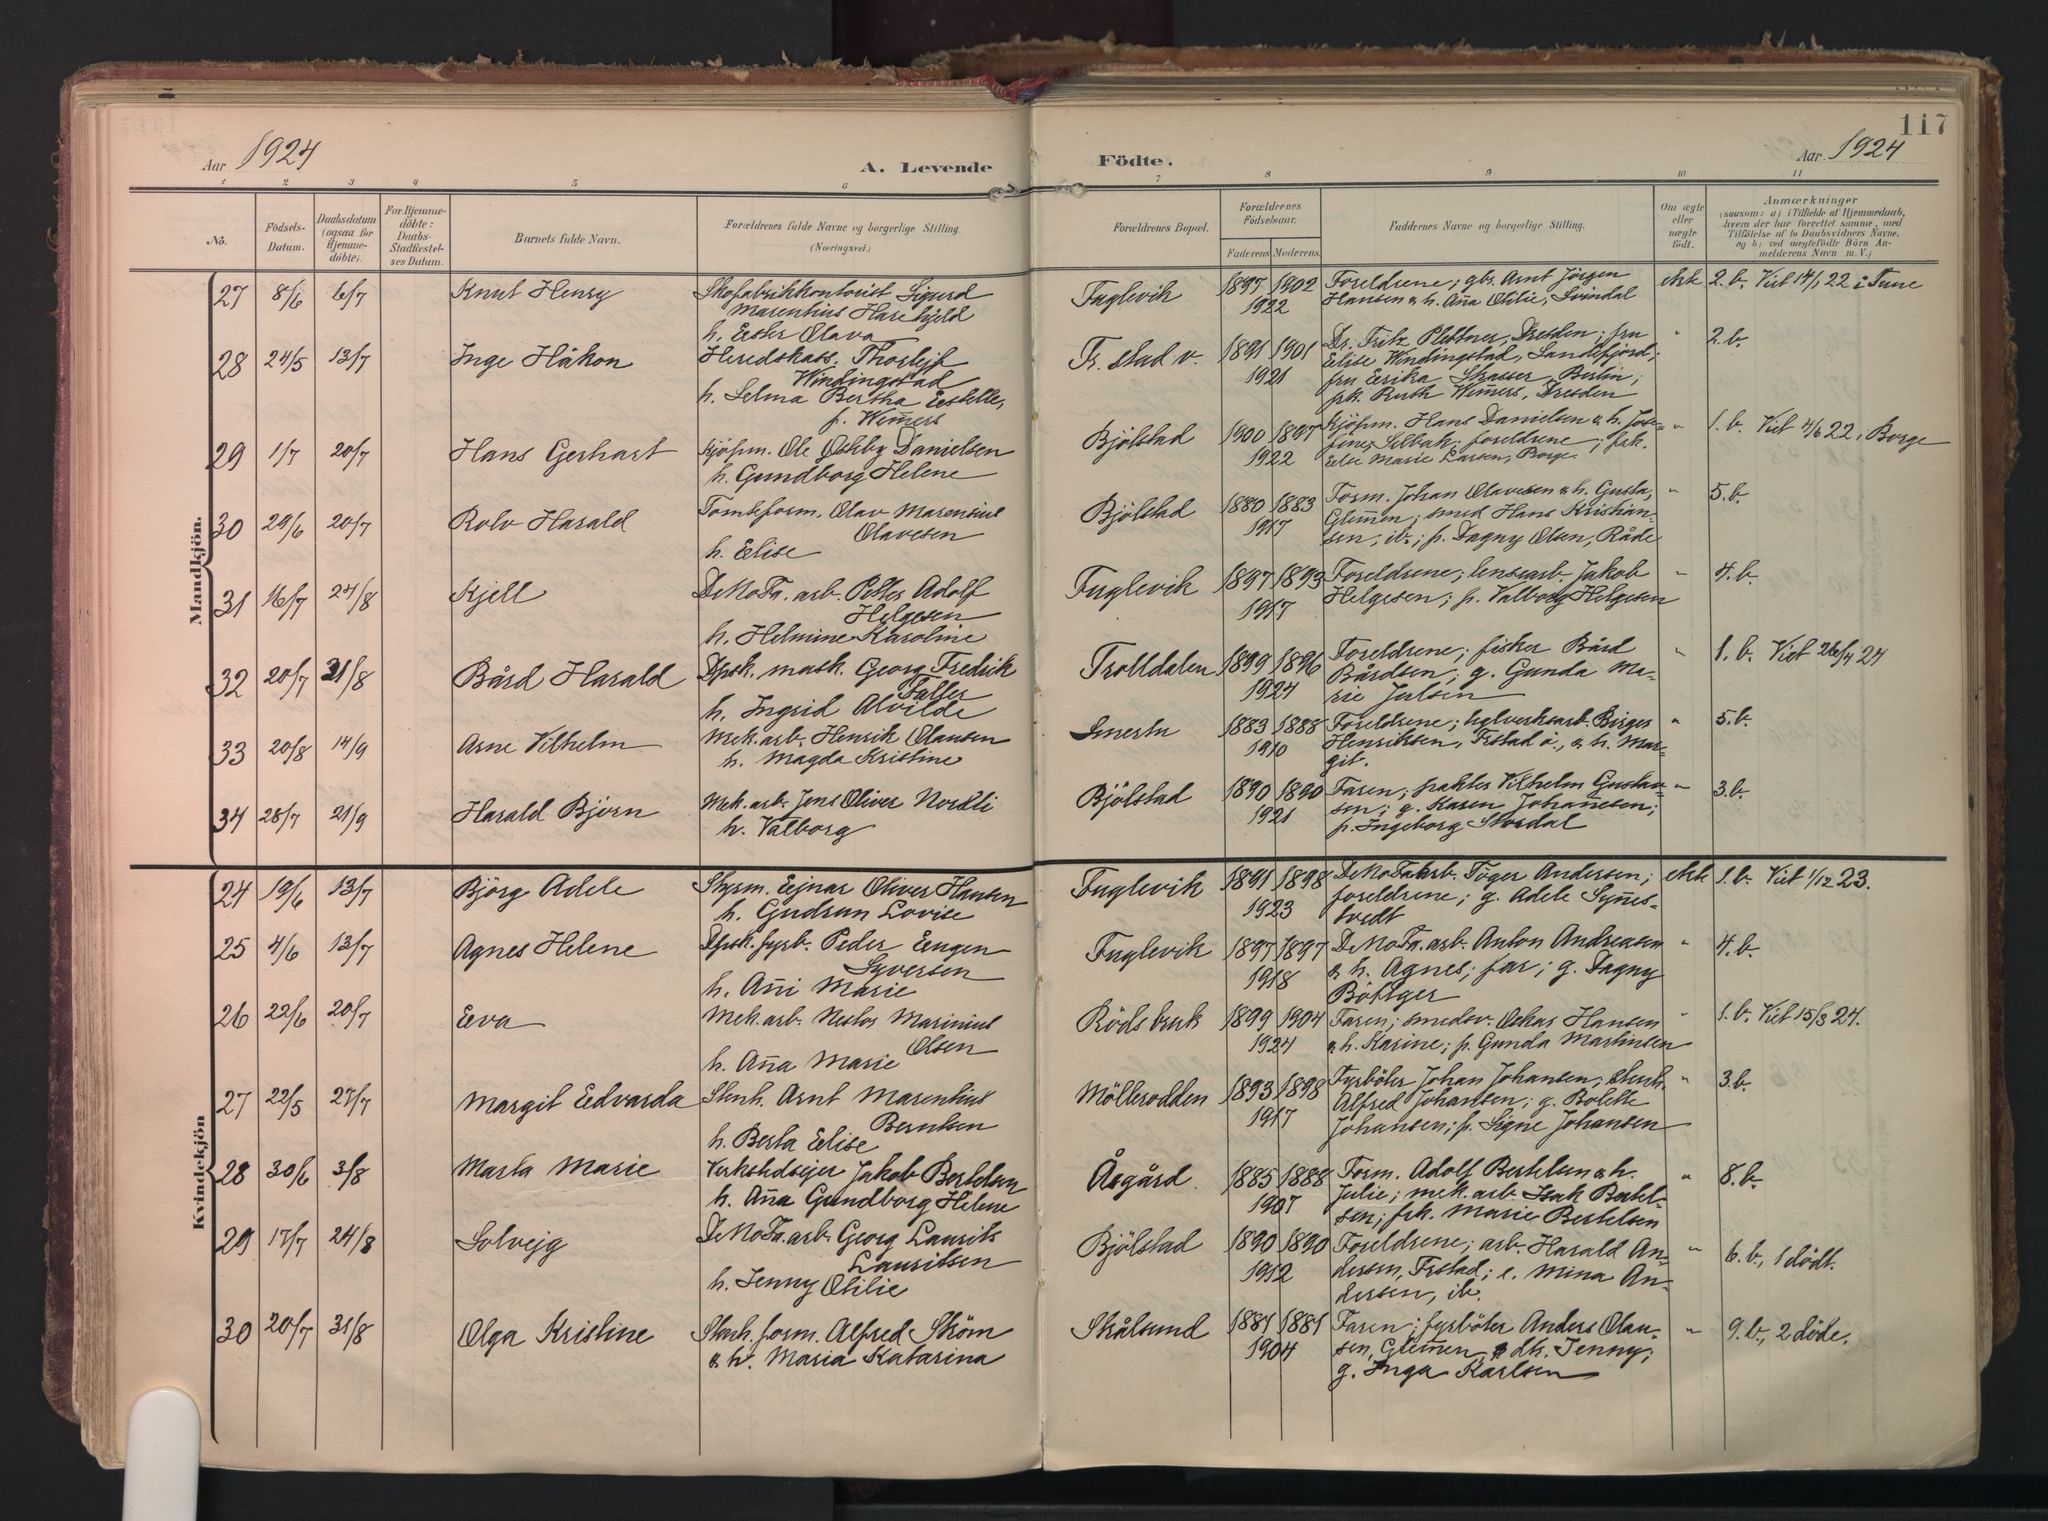 117
Aar 1924
A. Levende
Födte.
Aar 1924
1 2 3 4 5 6 7 8 9 10 11
No.
Födsels-
Datum.
Daabsdatum
(ogsaa for
Hjemme-
döbte).
For Hjemme-
döbte:
Daabs-
Stadfæstel-
ses Datum.
Barnets fulde Navn.
Forældrenes fulde Navne og borgerlige Stilling
(Næringsvei.)
Forældrenes Bopæl.
Forældrenes
Födselsaar.
Faderens Moderens
Faddernes Navne og borgerlige Stilling.
Om ægte
eller
uægte
födt.
Anmærkninger
(saasom: a) i Tilfælde af Hjemmedaab,
hvem der har forrettet samme, med
Tilföielse af to Daabsvidners Navne.
og b) ved uægtefödte Börn An-
melderens Navn m. V.)
Mandkjön.
27 8/6 6/7 Knut Henry
Skofabrikkontorist Sigurd
Marentius Harekjeld
h. Ester Olava
Fuglevik 1897 1902
1922
Foreldrene; gbr. Arnt Jörgen
Hansen o. h. Aña Otilie, Svindal
ekte 2. b. Viet 14/1 22 i Tune
28 24/5 13/7 Inge Håkon
Heredskass. Thorlejf
Windingstad
h. Selma Bertha Estelle,
f. Wem̄ers
Fr. stad v. 1891 1901
1921
Dr. Fritz Plettner, Dresden; fru
Elise Windingstad, Sandefjord;
fru Erika Strasser, Berlin;
frk. Ruth Wem̄ers, Dresden
" 2. b.
29 1/7 20/7 Hans Gerhart
Kjöpm. Ole Östby Danielsen
h. Gundborg Helene
Bjölstad 1900 1897
1922
Kjöpm. Hans Danielsen o. h. Jose-
fine, Selbak; foreldrene; frk.
Else Marie Larsen, Borge
" 1. b. Viet 4/6 22 i Borge
30 29/6 20/7 Rolv Harald
Tomteform. Olav Marensius
Olavesen
h. Elise
Bjölstad 1880 1883
1917
Form. Johan Olavesen o. h. Gusta,
Glem̄en; smed Hans Kristian-
sen, ib.; p. Dagny Olsen, Råde
" 5. b.
31 16/7 24/8 Kjell
DeNoFa. arb. Petter Adolf
Helgesen
h. Helmine Karoline
Fuglevik 1897 1893
1917
Foreldrene; lensearb. Jakob
Helgesen; p. Valborg Helgesen
" 4. b.
32 20/7 31/8 Bård Harald
Dpsk. mask. Georg Fredrik
Faller
h. Ingrid Alvilde
Trolldalen 1899 1896
1924
Foreldrene; fisker Bård
Bårdsen; g. Gunda Ma-
rie Julsen
" 1. b. Viet 26/4 24
33 20/8 14/9 Arne Vilhelm
Mek. arb. Henrik Olausen
h. Magda Kristine
Smertu 1883 1888
1910
Foreldrene; teglverksarb. Birger
Henriksen, Frstad ö., o. h. Mar-
git.
" 5. b.
34 28/7 21/9 Harald Björn
Mek. arb. Jens Oliver Nordli
h. Valborg
Bjölstad 1890 1890
1921
Faren; frakter Vilhelm Gustav-
sen; g. Karen Johanesen;
p. Ingeborg Skordal
" 3. b.
Kvindekjön
24 19/6 13/7 Björg Adele
Styrm. Ejnar Oliver Hansen
h. Gudrun Lovise
Fuglevik 1891 1898
1923
DeNoFaarb. Töger Andersen;
foreldrene; g. Adele Syñes-
tvedt
ekte 1. b. Viet 1/12 23.
25 4/6 13/7 Agnes Helene
Dpsk. fyrb. Peder Eugen
Syversen
h. Añi Marie
Fuglevik 1897 1897
1918
DeNoFa. arb. Anton Andreasen
o. h. Agnes; far; g. Dagny
Böttger
" 4. b.
26 22/6 20/7 Eva
Mek. arb. Nestor Marinius
Olsen
h. Aña Marie
Röds bruk 1899 1904
1924
Faren; smedsv. Oskar Hansen
o. h. Karine; p. Gunda Martinsen
" 1. b. Viet 15/3 24.
27 22/5 27/7 Margit Edvarda
Stenh. Arnt Marentius
Berntsen
h. Berta Elise
Möllerodden 1893 1898
1917
Fyrböter Johan Johansen; stenh.
Alfred Johansen; g. Bolette
Johansen; p. Signe Johansen
" 3. b.
28 30/6 3/8 Marta Marie
Verkstedsejer Jakob Bertelsen
h. Aña Gundborg Helene
Åsgård. 1885 1888
1907
Form. Adolf Bertelsen o. h.
Julie; mek. arb. Isak Bertel-
sen; frk. Marie Bertelsen
" 8. b.
29 17/7 24/8 Solvejg
DeNoFa. arb. Georg Laurits
Lauritsen
h. Jenny Otilie
Bjölstad 1890 1890
1912
Foreldrene; arb. Harald An-
dersen, Frstad; e. Mina An-
dersen, ib.
" 6. b., 1 dödt.
30 20/7 31/8 Olga Kristine
Stenh. form. Alfred Ström
o. h. Maria Katarina
Skålsund 1881 1881
1904
Faren; fyrböter Anders Olau-
sen, Glem̄en, o. dtr. Jenny;
g. Inga Karlsen
" 9. b., 2 döde.